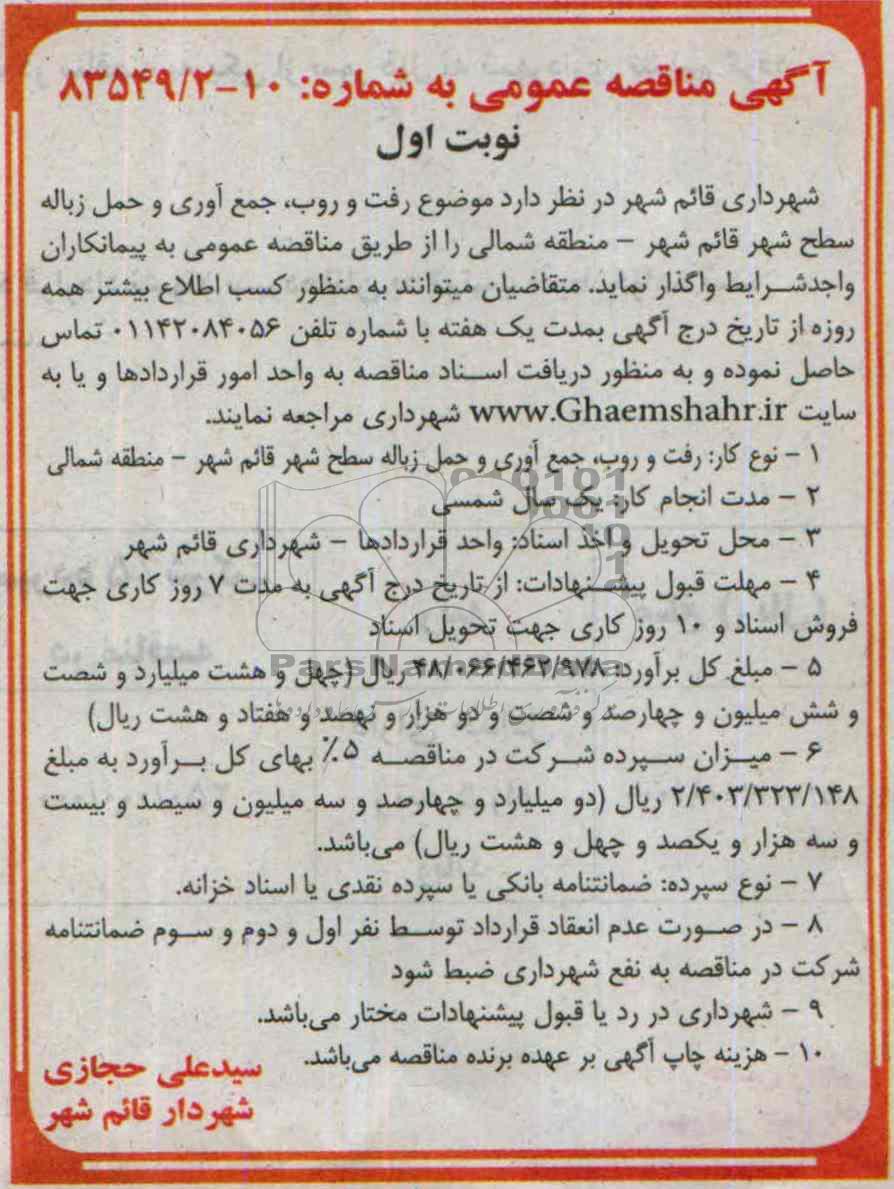 آگهی مناقصه عمومی به شماره: ۱۰-۸۳۵۴۹/۲
نوبت اول
شهرداری قائم شهر در نظر دارد موضوع رفت و روب، جمع آوری و حمل زباله
سطح شهر قائم شهر – منطقه شمالی را از طریق مناقصه عمومی به پیمانکاران
واجدشرایط واگذار نماید. متقاضیان میتوانند به منظور کسب اطلاع بیشتر همه
روزه از تاریخ درج آگهی بمدت یک هفته با شماره تلفن ۰۱۱۴۲۰۸۴۰۵۶ تماس
حاصل نموده و به منظور دریافت اسناد مناقصه به واحد امور قراردادها و یا به
سایت www.Ghaemshahr.ir شهرداری مراجعه نمایند.
۱ – نوع کار: رفت و روب، جمع آوری و حمل زباله سطح شهر قائم شهر – منطقه شمالی
۲ – مدت انجام کار: یک سال شمسی
۳ – محل تحویل و اخذ اسناد: واحد قراردادها – شهرداری قائم شهر
۴ – مهلت قبول پیشنهادات: از تاریخ درج آگهی به مدت ۷ روز کاری جهت
فروش اسناد و ۱۰ روز کاری جهت تحویل اسناد
ParsNamadData
۵ – مبلغ کل برآورد: ۴۸/۰۶۶/۴۶۲/۹۷۸ ریال (چهل و هشت میلیارد و شصت
و شش میلیون و چهارصد و شصت و دو هزار و نهصد و هفتاد و هشت ریال)
۶ – میزان سپرده شرکت در مناقصه ۵٪ بهای کل برآورد به مبلغ
۲/۴۰۳/۳۲۳/۱۴۸ ریال (دو میلیارد و چهارصد و سه میلیون و سیصد و بیست
و سه هزار و یکصد و چهل و هشت ریال) می‌باشد.
۷ – نوع سپرده: ضمانتنامه بانکی یا سپرده نقدی یا اسناد خزانه.
۸ – در صورت عدم انعقاد قرارداد توسط نفر اول و دوم و سوم ضمانتنامه
شرکت در مناقصه به نفع شهرداری ضبط شود
۹ – شهرداری در رد یا قبول پیشنهادات مختار می‌باشد.
۱۰ – هزینه چاپ آگهی بر عهده برنده مناقصه می‌باشد.
سیدعلی حجازی
شهردار قائم شهر